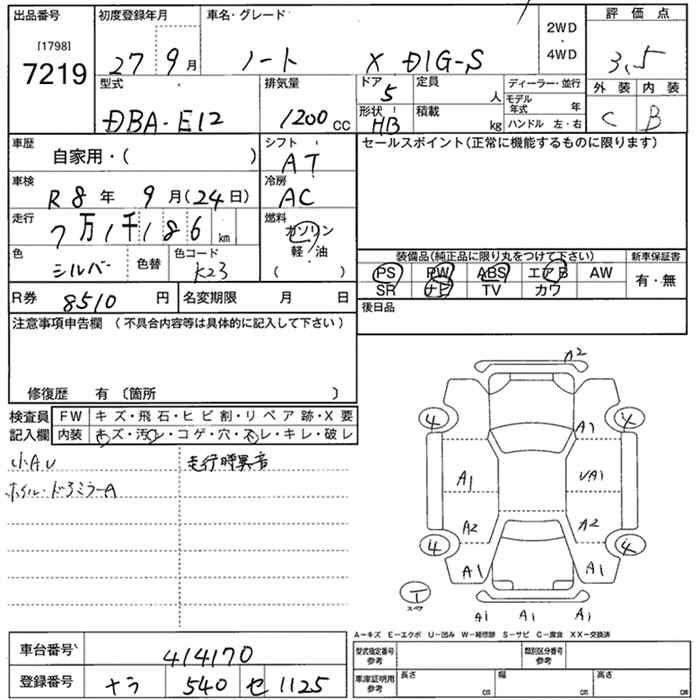 出品番号 初度登録年月 車名・グレード 2WD・4WD 評価点
[1798]
7219 27 9月 ノート X DIG-S 3.5
型式 排気量 ドア 5 定員 人 ディーラー・並行 外装 内装
DBA-E12 1200 CC 形状 HB 積載 kg モデル年式 年 C B
ハンドル 左・右
車歴 自家用・( ) シフト AT セールスポイント(正常に機能するものに限ります)
車検 R8年 9月(24日) 冷房 AC
走行 7万1千186 km 燃料 ガソリン 軽・油 ( )
色 シルバー 色替 色コード K23
装備品(純正品に限り丸をつけて下さい) 新車保証書
PS PW ABS エアB AW 有・無
SR ナビ TV カワ
R券 8510円 名変期限 月 日 後日品
注意事項申告欄 (不具合内容等は具体的に記入して下さい)
修復歴 有 〔箇所 〕
検査員記入欄 FW キズ・飛石・ヒビ割・リペア跡・X要
内装 キズ・汚レ・コゲ・穴・スレ・キレ・破レ
小AU 走行時異音
ホイル・ドアミラーA
A2
4 4
A1
A1 UA1
A2 A2
4 4
A1 A1
T
スペア
A1 A1 A1
A-キズ E-エクボ U-凹み W-補修跡 S-サビ C-腐食 XX-交換済
車台番号 414170 型式指定番号 参考 類別区分番号 参考
登録番号 ナラ 540 せ 1125 車庫証明用 参考 長さ cm 幅 cm 高さ cm